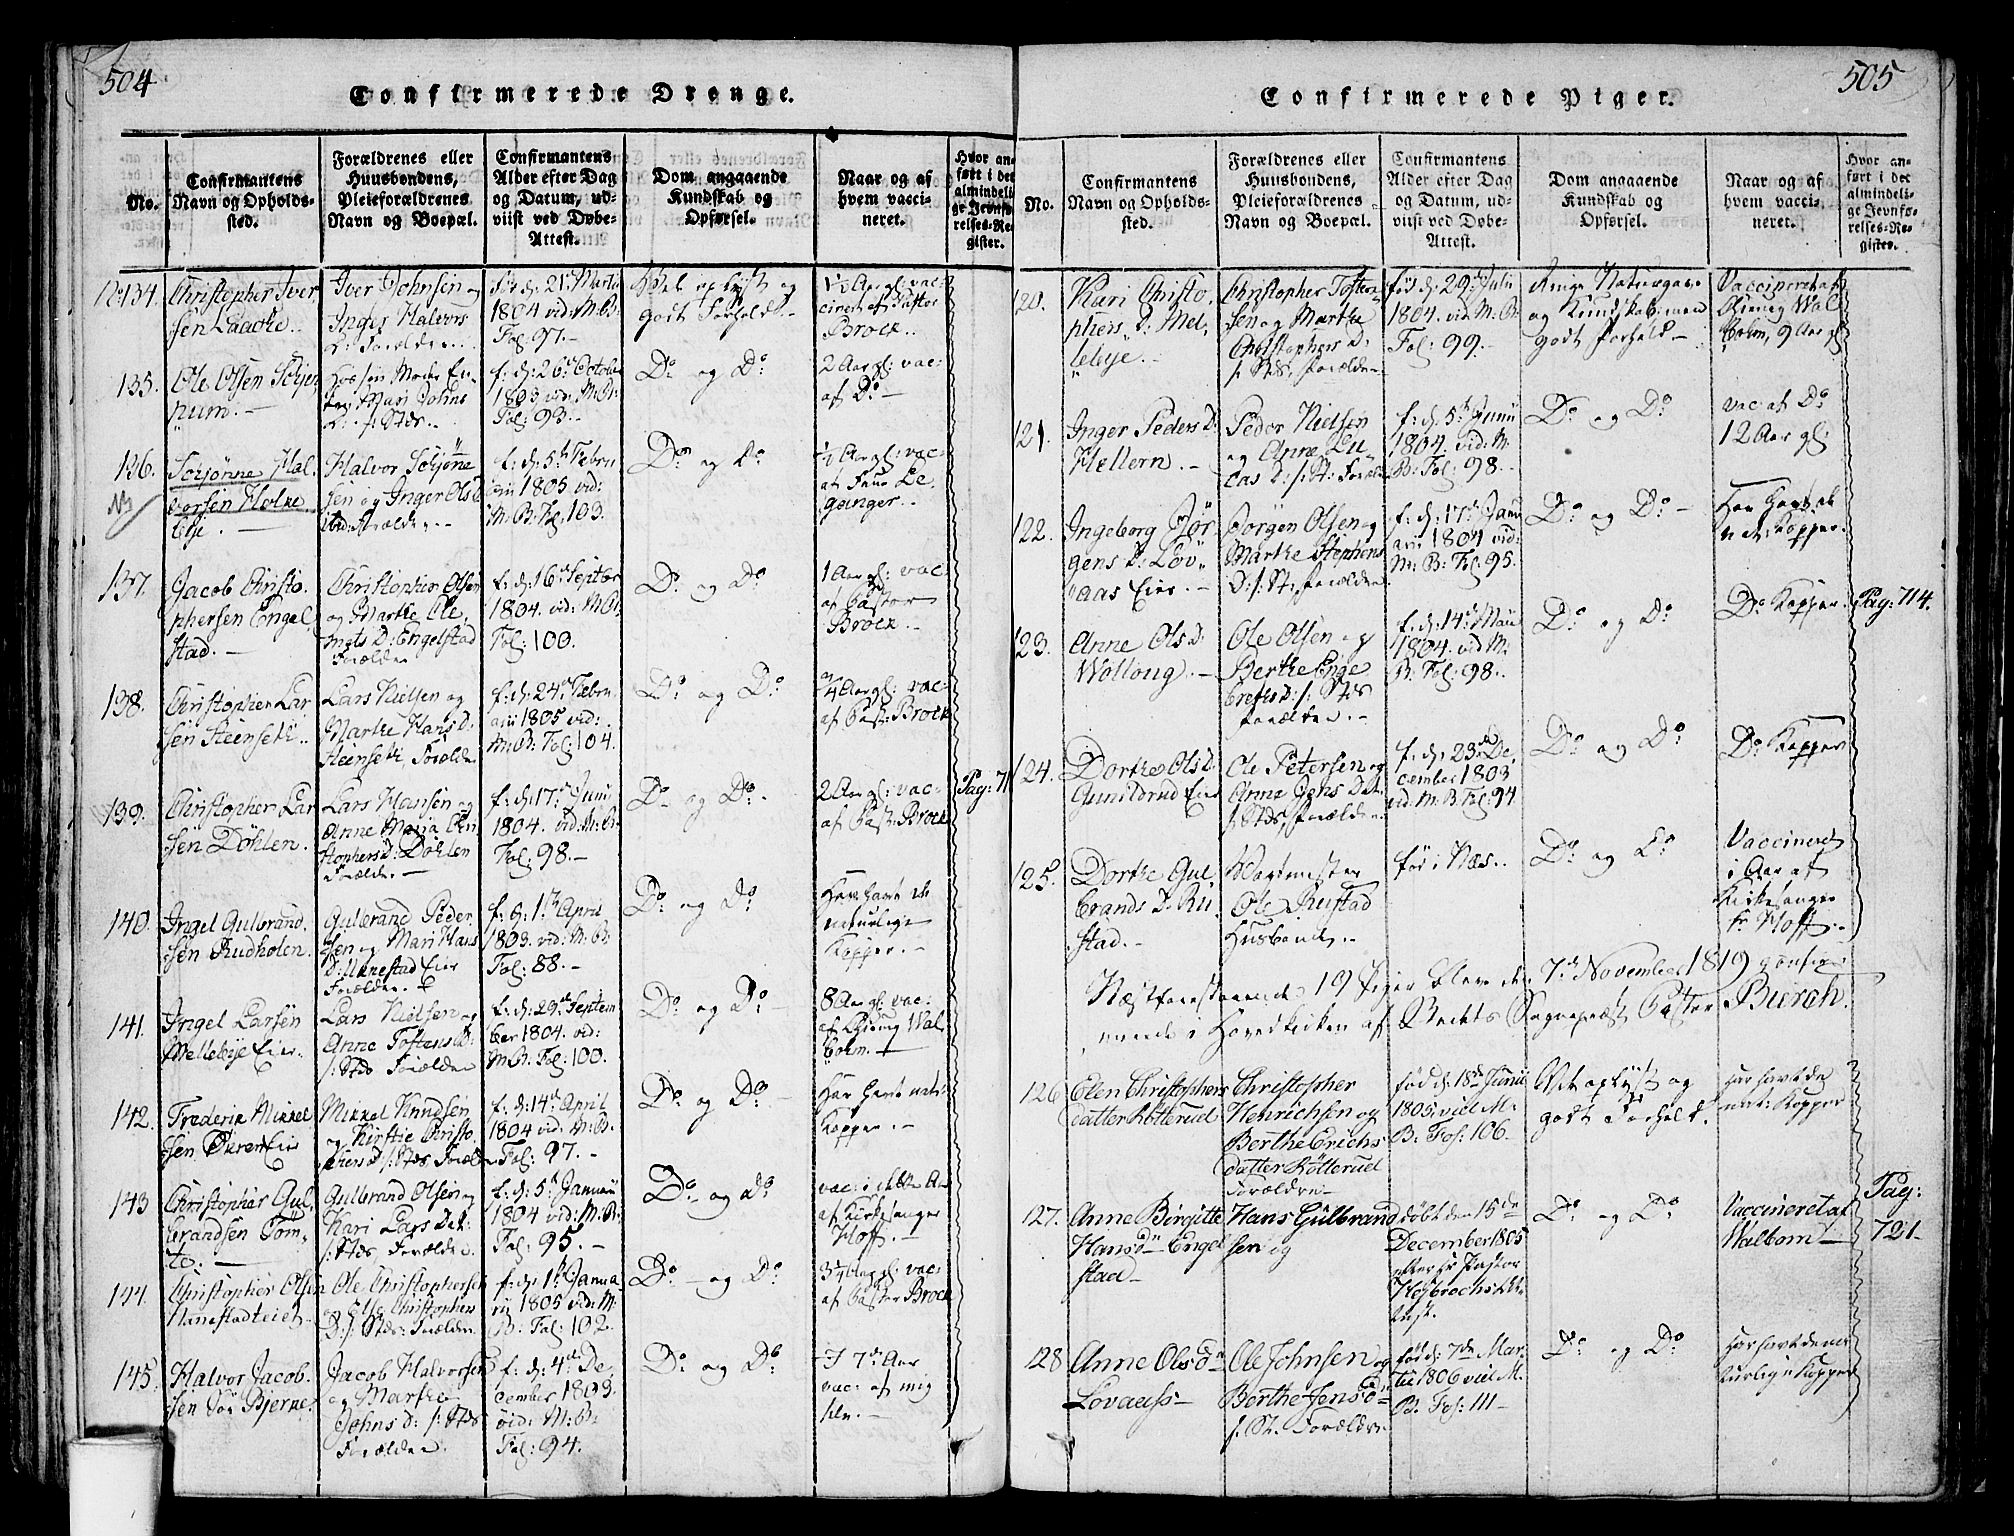 504
Confirmerede Drenge.
No.
Confirmantens
Navn og Opholds-
sted.
Forældrenes eller
Huusbondens,
Pleieforældrenes
Navn og Boepæl.
Confirmantens
Alder efter Dag
og Datum, ud-
viist ved Døbe-
Attest.
Dom angaaende
Kundskab og
Opførsel.
Naar og af
hvem vacci-
neret.
Hvor an-
ført i det
almindeli-
ge Jevnfø-
relses-Re-
gister.
No 134.
Christopher Iver
sen Laacke.
Iver Johnsen og
Inger Halvors
D: Forældre.
fød d: 21de Martii
1804 vid: M: B:
Fol: 97.
Vel oplyst og
godt Forhold.
1/2 Aar gl: vac-
cineret af Pastor
Brock.
135.
Ole Olsen Schjen
num.
Hos sin Moder En-
ken Mari Johns
D: s: Stds.
f: d: 26de October
1803 vid: M: B:
Fol: 93.
Do og Do
2 Aar gl: vac:
af Do
136.
Schjønne Hal-
vorsen Holne
Eie.
Halvor Schjønne
sen og Inger Ols D
ibid: Forældre.
f: d: 5te Febru
arii 1805 vid:
M: B: Fol: 103.
Do og Do
1/2 Aar gl: vac-
af
Le
ganger.
137.
Jacob Christo-
phersen Engel-
stad.
Christopher Olsen
og Marthe Cle-
mets D: Engelstad
Forældre
f: d: 16de Septbr
1804. vid: M: B:
Fol: 100.
Do og Do
1 Aar gl: vac.
af Pastor
Brock.
138.
Christopher Lar
sen Steenseth.
Lars Nielsen og
Marthe Hans D:
Steenseth, Forældre
f: d: 24de Febru
arii 1805 vid:
M: B: Fol: 104.
Do og Do
3/4 Aar gl: vac-
af Past: Brock
139.
Christopher Lar
sen Døhlen.
Lars Hansen og
Anne Maria Chri
stophers D: Døhlen
Forældre.
f: d: 17de Junii
1804. vid: M: B:
Fol: 98.
Do og Do.
2 Aar gl: vac-
af Past: Brock
Pag: 71
140.
Ingel Gulbrand
sen Rudholen.
Gulbrand Peder
sen og Mari Hans
D: Hanestad Eier
Forældre.
f: d: 1te April
1803. vid: M: B:
Fol: 88.
Do og Do
Har havt de
naturlige
Kopper.
141.
Ingel Larsen
Mellebye Eier.
Lars Nielsen og
Anne Tostens D:
s: Stds Forældre
f: d: 29de Septem
ber 1804. vid:
M: B: Fol: 100.
Do og Do
8 Aar gl: vac:
af Wal-
bom.
142.
Frederik Mikkel
sen Øderen Eier
Mikkel Knudsen
og Kirstie Christo
phers D s: Stds, Forældre
f: d: 14de April
1804 vid: M: B:
Fol: 97.
Do og Do
Har havt nat:
Kopper.
143
Christopher Gul-
brandsen Tom-
to.
Gulbrand Olsen og
Kari Lars Dat:
s: Stds, Forældre.
f: d: 5te Januarii
1804 vid: M: B:
Fol: 95.
Do og Do
vac: i dette Aar
af Kirkesanger
Hoff.
144.
Christopher Olsen
Hanestadteiet.
Ole Christophersen
og Else Christophers
D: s: Stds: Forældre
f: d: 1te Janua
rii 1805 vid: M:
B: Fol: 102.
Do og Do
3/4 Aar gl: vac:
af Pastor Brock
145.
Halvor Jacob-
sen Sør Bjerne.
Jacob Halvorsen
og Marthe
Johns D: s: Stds
Forældre.
f: d: 4de De-
cember 1803.
vid: M: B:
Fol: 94.
Do og Do
I 7de Aar
vac: af mig
selv.
505
Confirmerede Piger.
No.
Confirmantens
Navn og Opholds-
sted.
Forældrenes eller
Huusbondens,
Pleieforældrenes
Navn og Boepæl.
Confirmantens
Alder efter Dag
og Datum, ud-
viist ved Døbe-
Attest.
Dom angaaende
Kundskab og
Opførsel.
Naar og af
hvem vacci-
neret.
Hvor an-
ført i det
almindeli-
ge Jevnfø-
relses-Re-
gister.
120.
Kari Christo-
phers D: Mel-
lebye.
Christopher Tosten-
sen og Marthe
Christophers D.
s: Stds, Forældre
fød d: 29de Julii
1804. vid: M: B:
Fol: 99.
Ringe Naturgave
og Kundskab, men
godt Forhold
Vaccineret af
Wal-
bom, 9 Aar gl
121.
Inger Peders D.
Hellern.
Peder Nielsen
og Anne Lu-
cas D: s: St: Forældre
f: d: 5te Junii
1804. vid: M.
B: Fol: 98.
Do og Do
vac af Do
12 Aar gl:
122.
Ingeborg Jør-
gens D: Løv-
aas Eier.
Jørgen Olsen og
Marthe Stephens
D: s: St:, Forældre
f: d: 17de Janu
arii 1804 vid:
M: B: Fol: 95.
Do og Do
Har havt de
nat: Kopper.
123.
Anne Ols D.
Wollong.
Ole Olsen og
Berthe Enge-
brets D: s: Stds
Forældre.
f: d: 14de Maii
1804. vid: M:
B: Fol: 98.
Do og Do
Do Kopper.
Pag: 714.
124.
Dorthe Ols D:
Gunildrud Eier
Ole Petersen og
Anne Jens Dat:
s: Stds, Forældre
f: d: 23de De-
cember 1803
vid: M: B. Fol: 94
Do og Do
Do Kopper
125.
Dorthe Gul-
brands D: Ru-
stad.
Ole Rustad
Husbonde.
fød i Næs.
Do og Do
Vaccineret
i Aar af
Kirkesanger
Hr Hoff.
Næstforestaaende 19 Piger bleve den 7de November 1819 confir-
merede i Hovedkirken af Stedets Sognepræst Pastor Buroh.
126
Elen Christophers
datter Rotterud
Christopher
Henrichsen og
Berthe Erichs
datter Røtterud
Forældre
fød d: 18de Junii
1805. vid M:
B. Fol: 106.
Vel oplyst og
godt Forhold.
Har havt de
nat: Kopper
127.
Anne Birgitte
Hans Dtr Engel
stad
Hans Gulbrand
sen og
døbt den 15de
December 1805
efter Hr Pastor
At-
test.
Do og Do
Vaccineret af
Walbom
Pag:
721
128
Anne Ols Dtr
Lovaass
Ole Johnsen og
Berthe Jens Dtr
s. St. Forældre
fød d: 7de Mar-
tii 1806 vid M.
B. Fol: 111
Do og Do
Har havt de na-
turlige Kopper